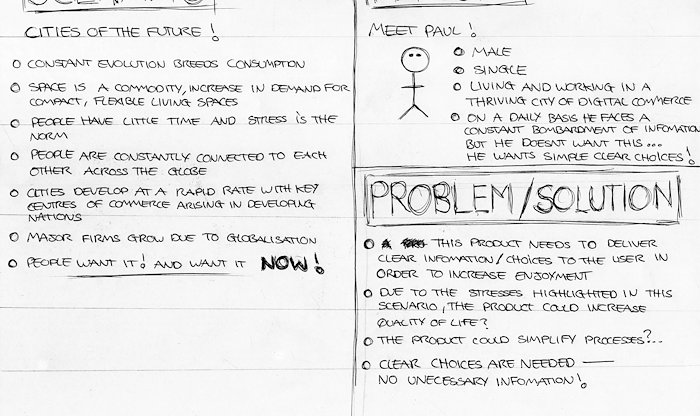 SCENARIO
CITIES OF THE FUTURE!
O CONSTANT EVOLUTION BREEDS CONSUMPTION
O SPACE IS A COMMODITY, INCREASE IN DEMAND FOR
COMPACT, FLEXIBLE LIVING SPACES
O PEOPLE HAVE LITTLE TIME AND STRESS IS THE
NORM
O PEOPLE ARE CONSTANTLY CONNECTED TO EACH
OTHER ACROSS THE GLOBE
O CITIES DEVELOP AT A RAPID RATE WITH KEY
CENTRES OF COMMERCE ARISING IN DEVELOPING
NATIONS
O MAJOR FIRMS GROW DUE TO GLOBALISATION
O PEOPLE WANT IT! AND WANT IT NOW!
MEET PAUL!
O MALE
O SINGLE
O LIVING AND WORKING IN A
THRIVING CITY OF DIGITAL COMMERCE
O ON A DAILY BASIS HE FACES A
CONSTANT BOMBARDMENT OF INFOMATION
BUT HE DOESNT WANT THIS...
HE WANTS SIMPLE CLEAR CHOICES!
PROBLEM/SOLUTION
O THIS PRODUCT NEEDS TO DELIVER
CLEAR INFOMATION/CHOICES TO THE USER IN
ORDER TO INCREASE ENJOYMENT
O DUE TO THE STRESSES HIGHLIGHTED IN THIS
SCENARIO, THE PRODUCT COULD INCREASE
QUALITY OF LIFE?
O THE PRODUCT COULD SIMPLIFY PROCESSES?...
O CLEAR CHOICES ARE NEEDED —
NO UNECESSARY INFOMATION!